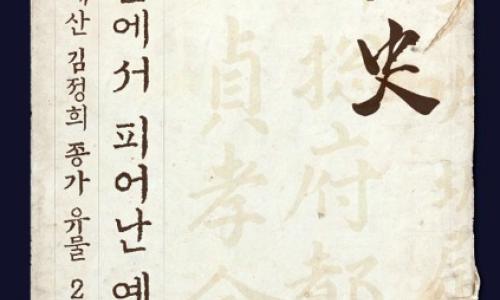 史
府都
貞孝
에서 피어난 예
산 김정희 종가 유물 2